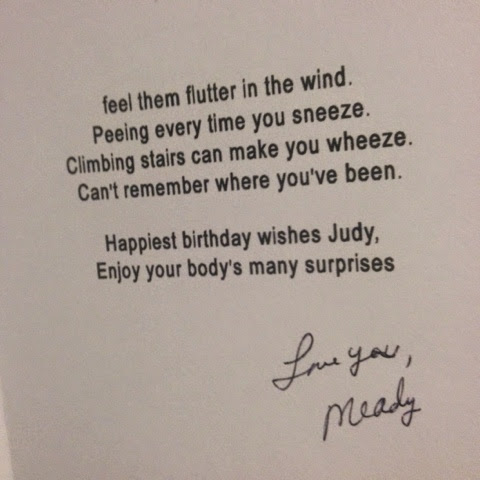 feel them flutter in the wind.
Peeing every time you sneeze.
Climbing stairs can make you wheeze.
Can't remember where you've been.
Happiest birthday wishes Judy,
Enjoy your body's many surprises
Love you,
Meady